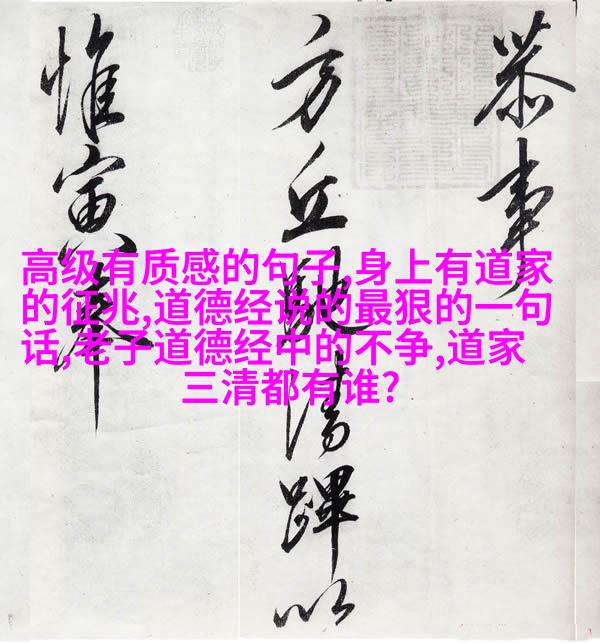 恭事
方丘馳清蹕以
惟寅奉
高级有质感的句子,身上有道家
的征兆,道德经说的最狠的一句
话,老子道德经中的不争,道家
三清都有谁?